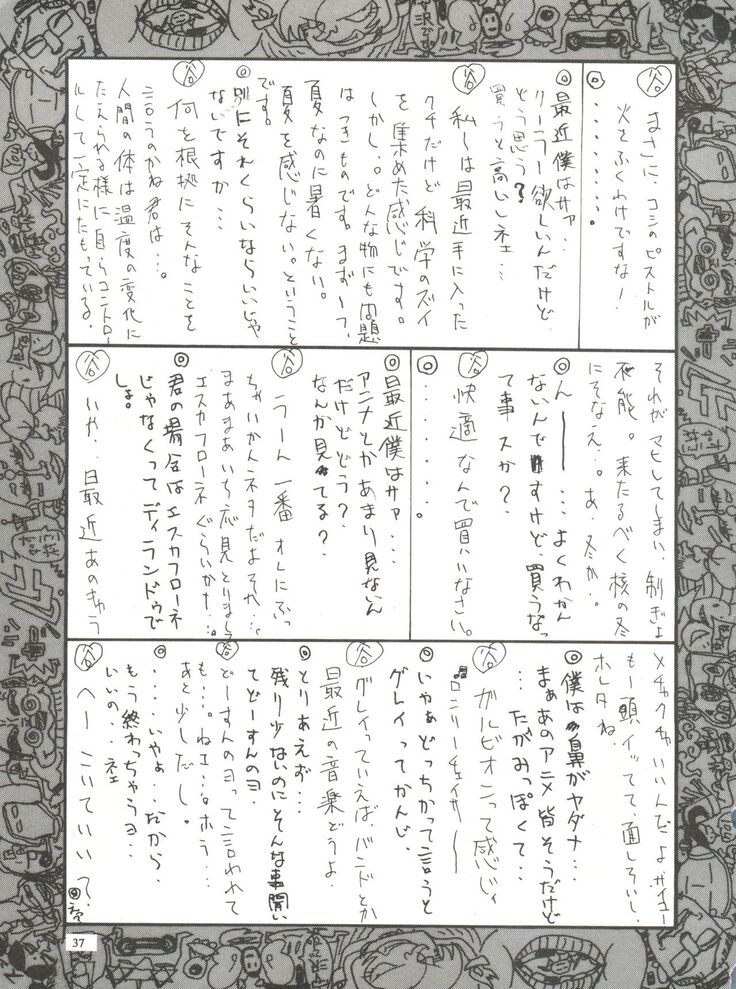 谷 まさに、コシのピストルが
火をふくわけですな!
◎・・・・・・・・・・・。
◎最近僕はサァ…
クーラー欲しいんだけど
どう思う?
買うと高いしネェ…
谷 私しは最近手に入った
クチだけど科学のズイ
を集めた感じです。
しかし。どんな物にも問題
はつきものです。まず一つ、
夏なのに暑くない。
夏を感じない。ということ
です。
◎別にそれくらいならいいじゃ
ないですか…
谷 何を根拠にそんなことを
言うのかね君は…。
人間の体は温度の変化に
たえられる様に自らコントロー
ルして一定にたもっている。
それがマヒしてしまい、制ぎょ
不能。来たるべく核の冬
にそなえ…。あ、冬か…。
◎んーー…よくわかん
ないんですけど、買うなっ
て事スか?
谷 快適なんで買いなさい。
◎・・・・・・・。
◎最近僕はサァ…
アニメとかあまり見ないん
だけどどう?
なんか見てる?
谷 うーん一番オレにふっ
ちゃいかんネタだよそれ…。
まあまあいち応見とりまし
エスカフローネぐらいか!…。
君の場合はエスカフローネ
じゃなくってディランドゥで
しょ。
谷 いや、最近あのきゅう
メチャクチャいいんだよサイコー
もー頭イッてて、面しろいし、
ホレタね、
◎僕は鼻がヤダナ…
まぁあのアニメ皆そうだけど
…たがみっぽくて…
谷 ガルビオンって感じィ
♫ロンリーチェイサー
◎いやぁどっちかって言うと
グレイってかんじ、
谷 グレイっていえば、バンドとか
最近の音楽どうよ、
◎とりあえず…
残り少ないのにそんな事聞い
てどーすんのヨ、
谷 どーすんのヨって言われて
も…。ねエ…。ホラ…
あと少しだし。
◎・・・・いやぁ・・だから
もう終わっちゃうョ・・
いいの・・ネェ
谷 へーこいていい?
37